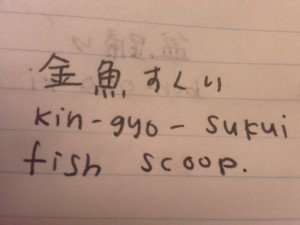 金魚すくい
kin-gyo-sukui
fish scoop.